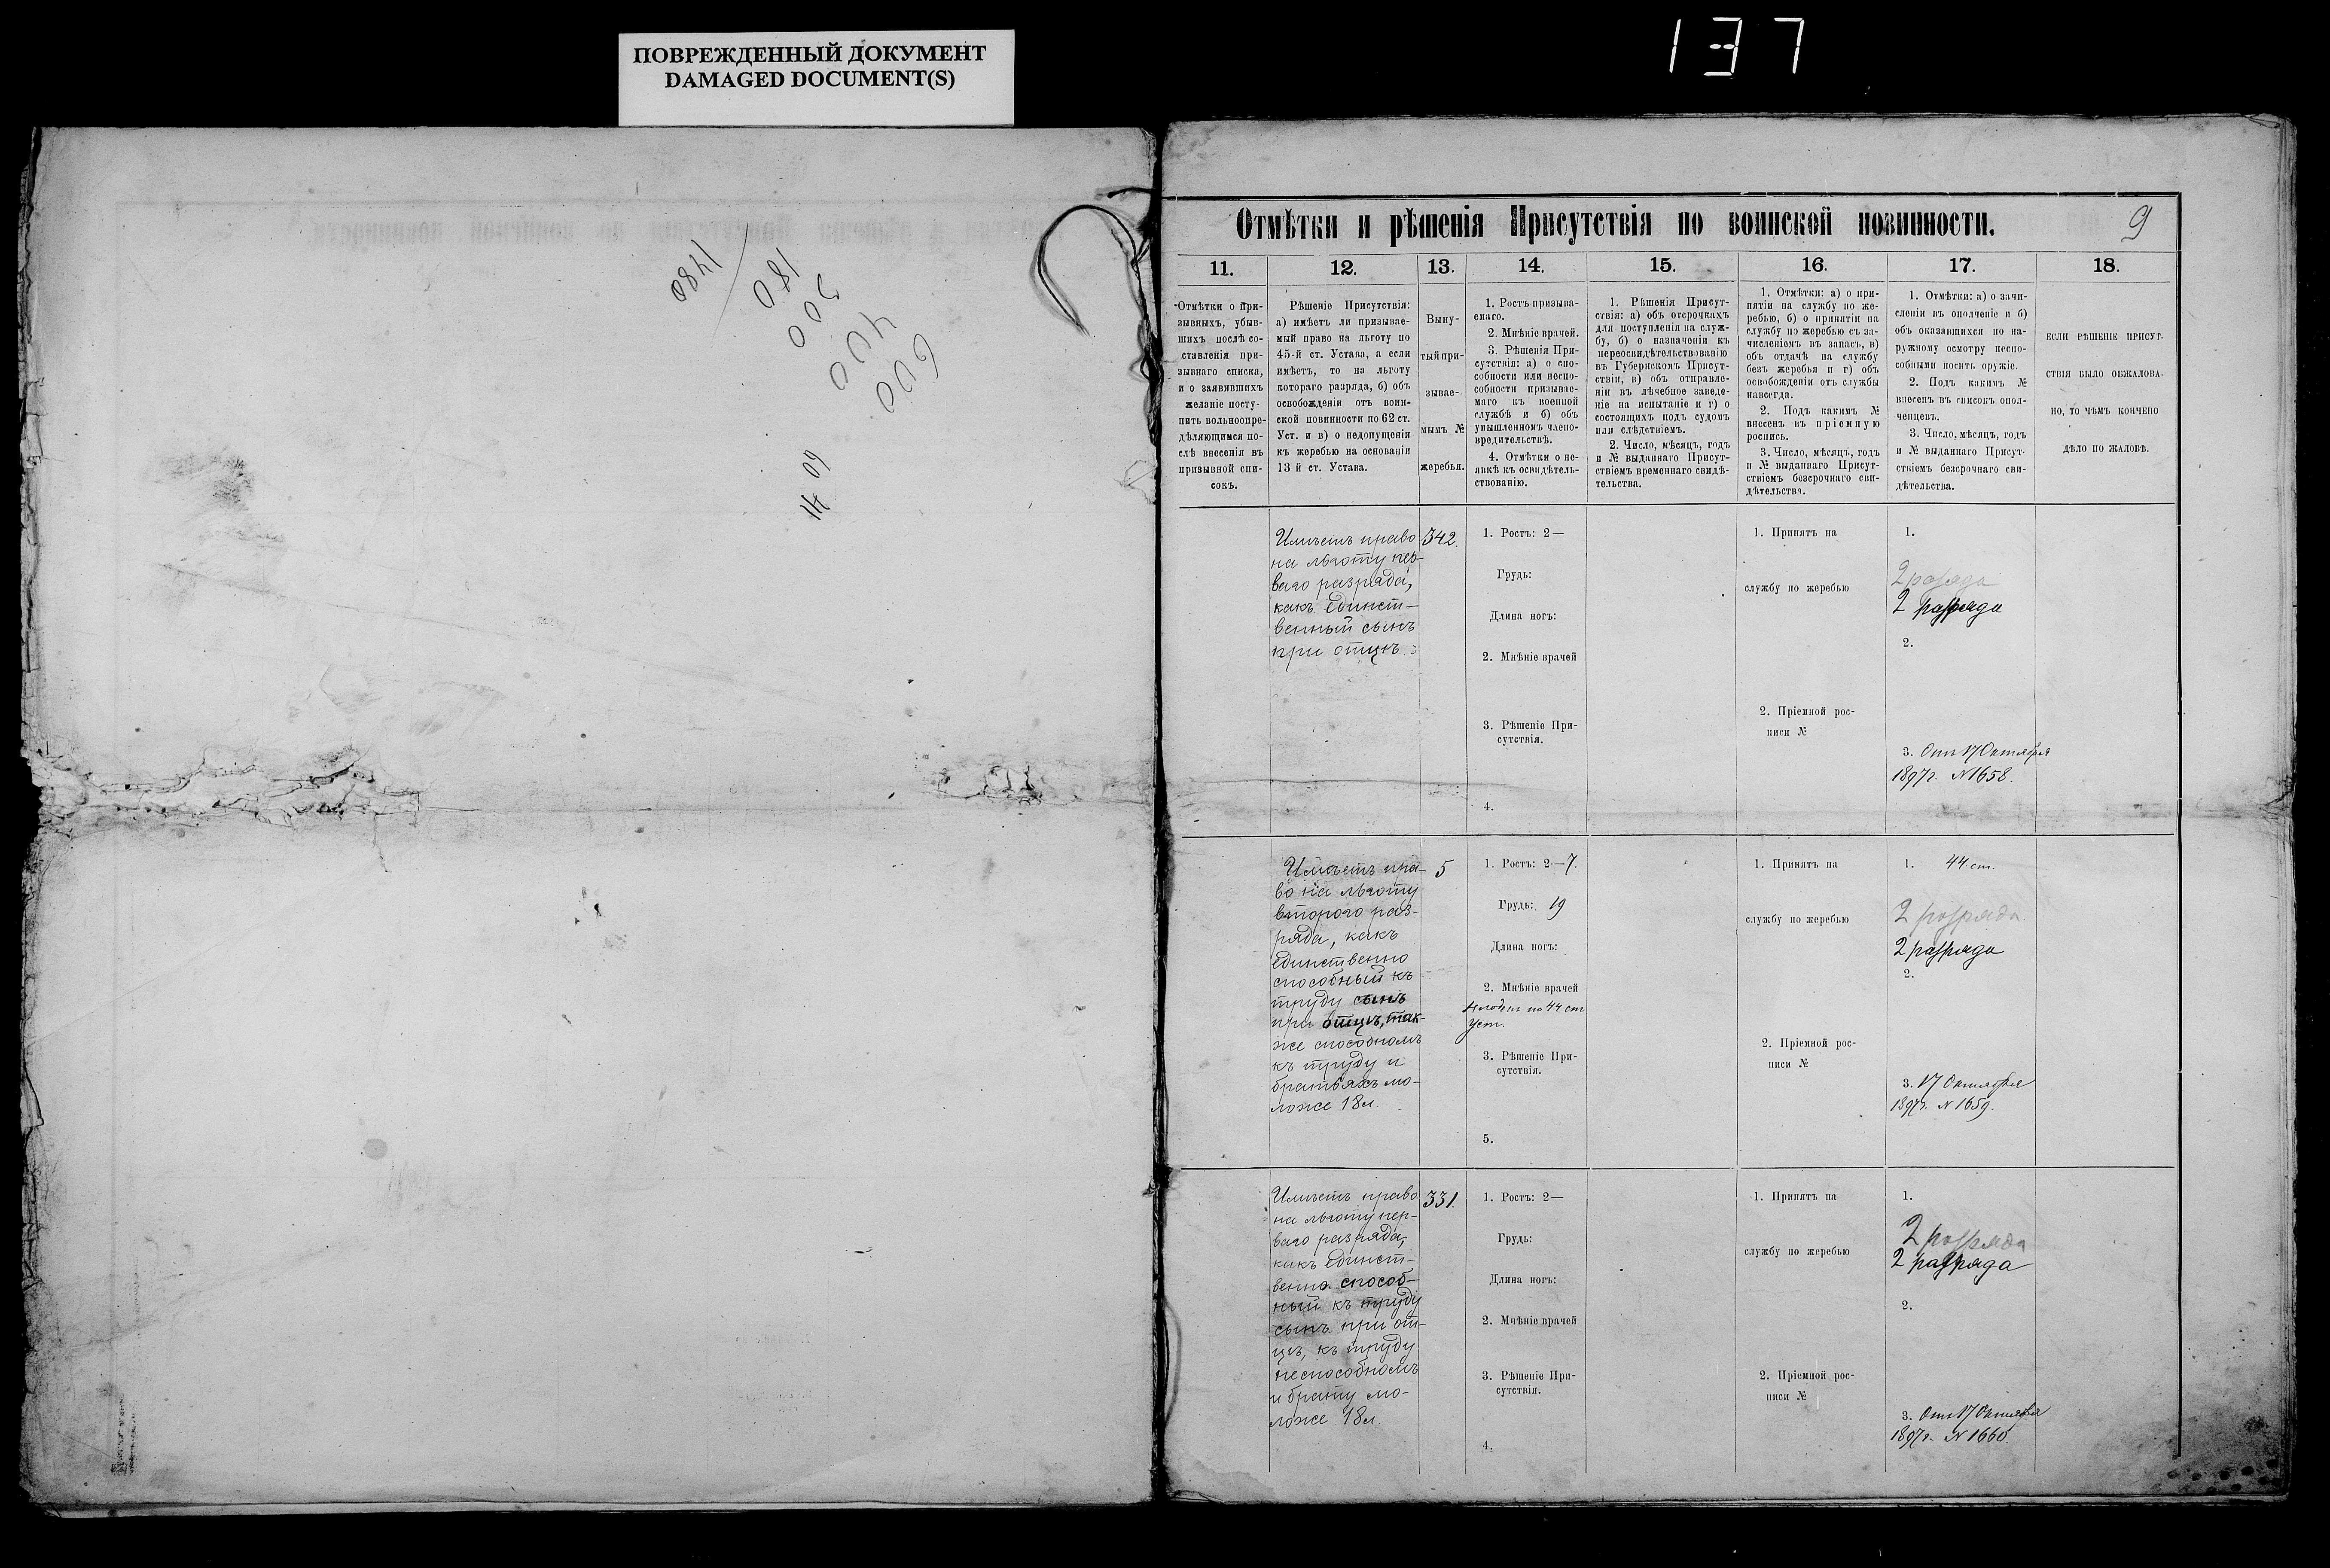 ПОВРЕЖДЕННЫЙ ДОКУМЕНТ
DAMAGED DOCUMENT(S)
137
1480
180
300
400
600
60
Отмѣтки и рѣшенія Присутствія по воинской повинности.
9
11.
Отмѣтки о при-
зывныхъ, убыв-
шихъ послѣ со-
ставленія при-
зывнаго списка,
и о заявившихъ
желаніе посту-
пить вольноопре-
дѣляющимся по-
слѣ внесенія въ
призывной спи-
сокъ.
12.
Рѣшеніе Присутствія:
а) имѣетъ ли призывае-
мый право на льготу по
45-й ст. Устава, а если
имѣетъ, то на льготу
котораго разряда, б) объ
освобожденіи отъ воин-
ской повинности по 62 ст.
Уст. и в) о недопущеніи
къ жеребью на основаніи
13 й ст. Устава.
13.
Выну-
тый при-
зывае-
мымъ №
жеребья.
14.
1. Ростъ призыва-
емаго.
2. Мнѣніе врачей.
3. Рѣшенія При-
сутствія: а) о спо-
собности или неспо-
собности призывае-
маго къ военной
службѣ и б) объ
умышленномъ члено-
вредительствѣ.
4. Отмѣтки о не-
явкѣ къ освидѣтель-
ствованію.
15.
1. Рѣшенія Присут-
ствія: а) объ отсрочкахъ
для поступленія на служ-
бу, б) о назначеніи къ
переосвидѣтельствованію
въ Губернскомъ Присут-
ствіи, в) объ отправле-
ніи въ лѣчебное заведе-
ніе на испытаніе и г) о
состоящихъ подъ судомъ
или слѣдствіемъ.
2. Число, мѣсяцъ, годъ
и № выданнаго Присут-
ствіемъ временнаго свидѣ-
тельства.
16.
1. Отмѣтки: а) о при-
нятіи на службу по же-
ребью, б) о принятіи на
службу по жеребью съ за-
численіемъ въ запасъ, в)
объ отдачѣ на службу
безъ жеребья и г) объ
освобожденіи отъ службы
навсегда.
2. Подъ какимъ №
внесенъ въ пріемную
роспись.
3. Число, мѣсяцъ, годъ
и № выданнаго Присут-
ствіемъ безсрочнаго сви-
дѣтельства.
17.
1. Отмѣтки: а) о зачи-
сленіи въ ополченіе и б)
объ оказавшихся по на-
ружному осмотру неспо-
собными носить оружіе.
2. Подъ какимъ №
внесенъ въ списокъ опол-
ченцевъ.
3. Число, мѣсяцъ, годъ
и № выданнаго Присут-
ствіемъ безсрочнаго сви-
дѣтельства.
18.
ЕСЛИ РѢШЕНІЕ ПРИСУТ-
СТВІЯ БЫЛО ОБЖАЛОВА-
НО, ТО ЧѢМЪ КОНЧЕНО
ДѢЛО ПО ЖАЛОБѢ.
Имѣетъ право
на льготу пер-
ваго разряда,
какъ единст-
венный сынъ
при отцѣ.
342.
1. Ростъ: 2—
Грудь:
Длина ногъ:
2. Мнѣніе врачей
3. Рѣшеніе При-
сутствія.
4.
1. Принятъ на
службу по жеребью
2. Пріемной рос-
писи №
1.
2 разряда
2 разряда
2.
3. Отъ 17 Октября
1897 г. № 1658.
Имѣетъ пра-
во на льготу
второго раз-
ряда, какъ
единственно
способный къ
труду сынъ
при отцѣ, так-
же способномъ
къ труду и
братьяхъ мо-
ложе 18 л.
5
1. Ростъ: 2—7.
Грудь: 19
Длина ногъ:
2. Мнѣніе врачей
Негоденъ по 44 ст
Уст.
3. Рѣшеніе При-
сутствія.
5.
1. Принятъ на
службу по жеребью
2. Пріемной рос-
писи №
1. 44 ст.
2 разряда
2 разряда
2.
3. 17 Октября
1897 г. № 1659.
Имѣетъ право
на льготу пер-
ваго разряда,
какъ единст-
венно способ-
ный къ труду
сынъ при от-
цѣ, къ труду
неспособномъ
и брату мо-
ложе 18 л.
331.
1. Ростъ: 2—
Грудь:
Длина ногъ:
2. Мнѣніе врачей
3. Рѣшеніе При-
сутствія.
4.
1. Принятъ на
службу по жеребью
2. Пріемной рос-
писи №
1.
2 разряда
2 разряда
2.
3. Отъ 17 Октября
1897 г. № 1660.